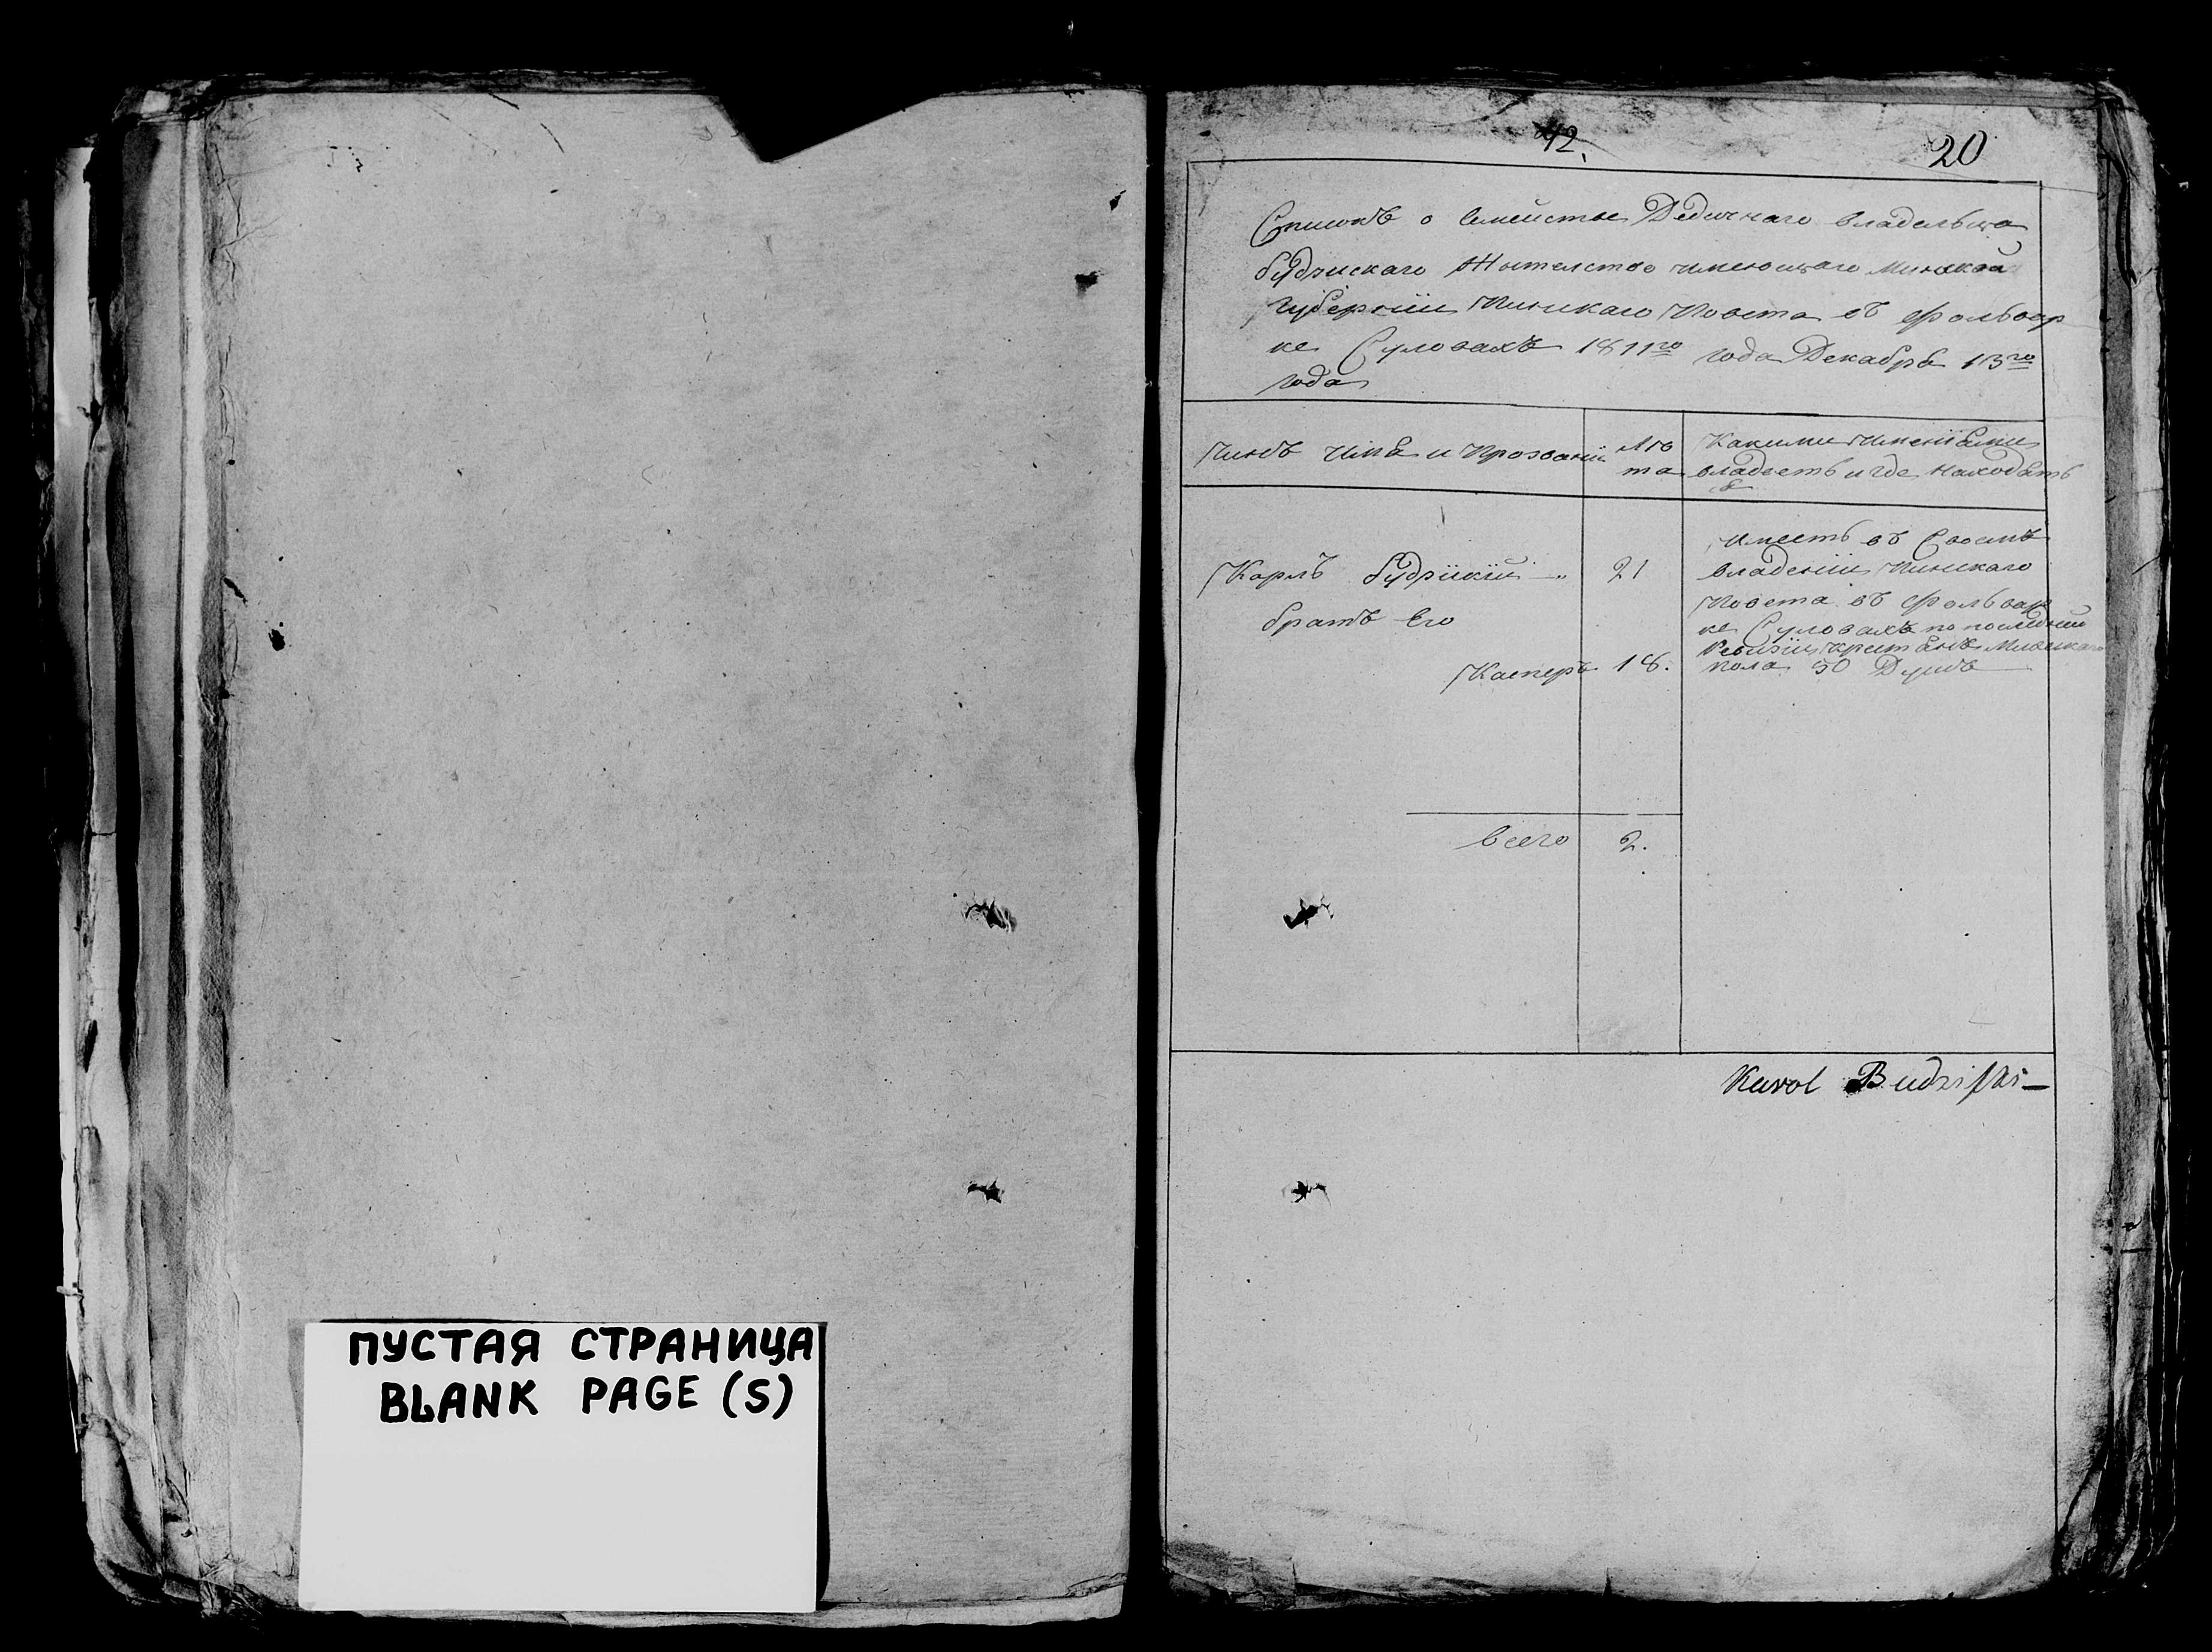 ПУСТАЯ СТРАНИЦА
BLANK PAGE (S)
42.
20
Списокъ о Семействе Дедичнаго владельца
Будзискаго Жытелство имеющаго Минской
Губернии Пинскаго Повета въ фольвар
ке Суловахъ 1811го года Декабря 13го
года
Чинъ Имя и Прозвание
Лѣ
та
Какими Имениями
владѣетъ и где Находять
ся
Карлъ Будзиский 21
братъ Его
Касперъ 18.
Имеетъ въ Своемъ
владении Пинскаго
Повета въ фольвар
ке Суловахъ по последней
Ревизии крестянъ Мужескаго
пола 50 Душъ
всего 2.
Karol Budziski